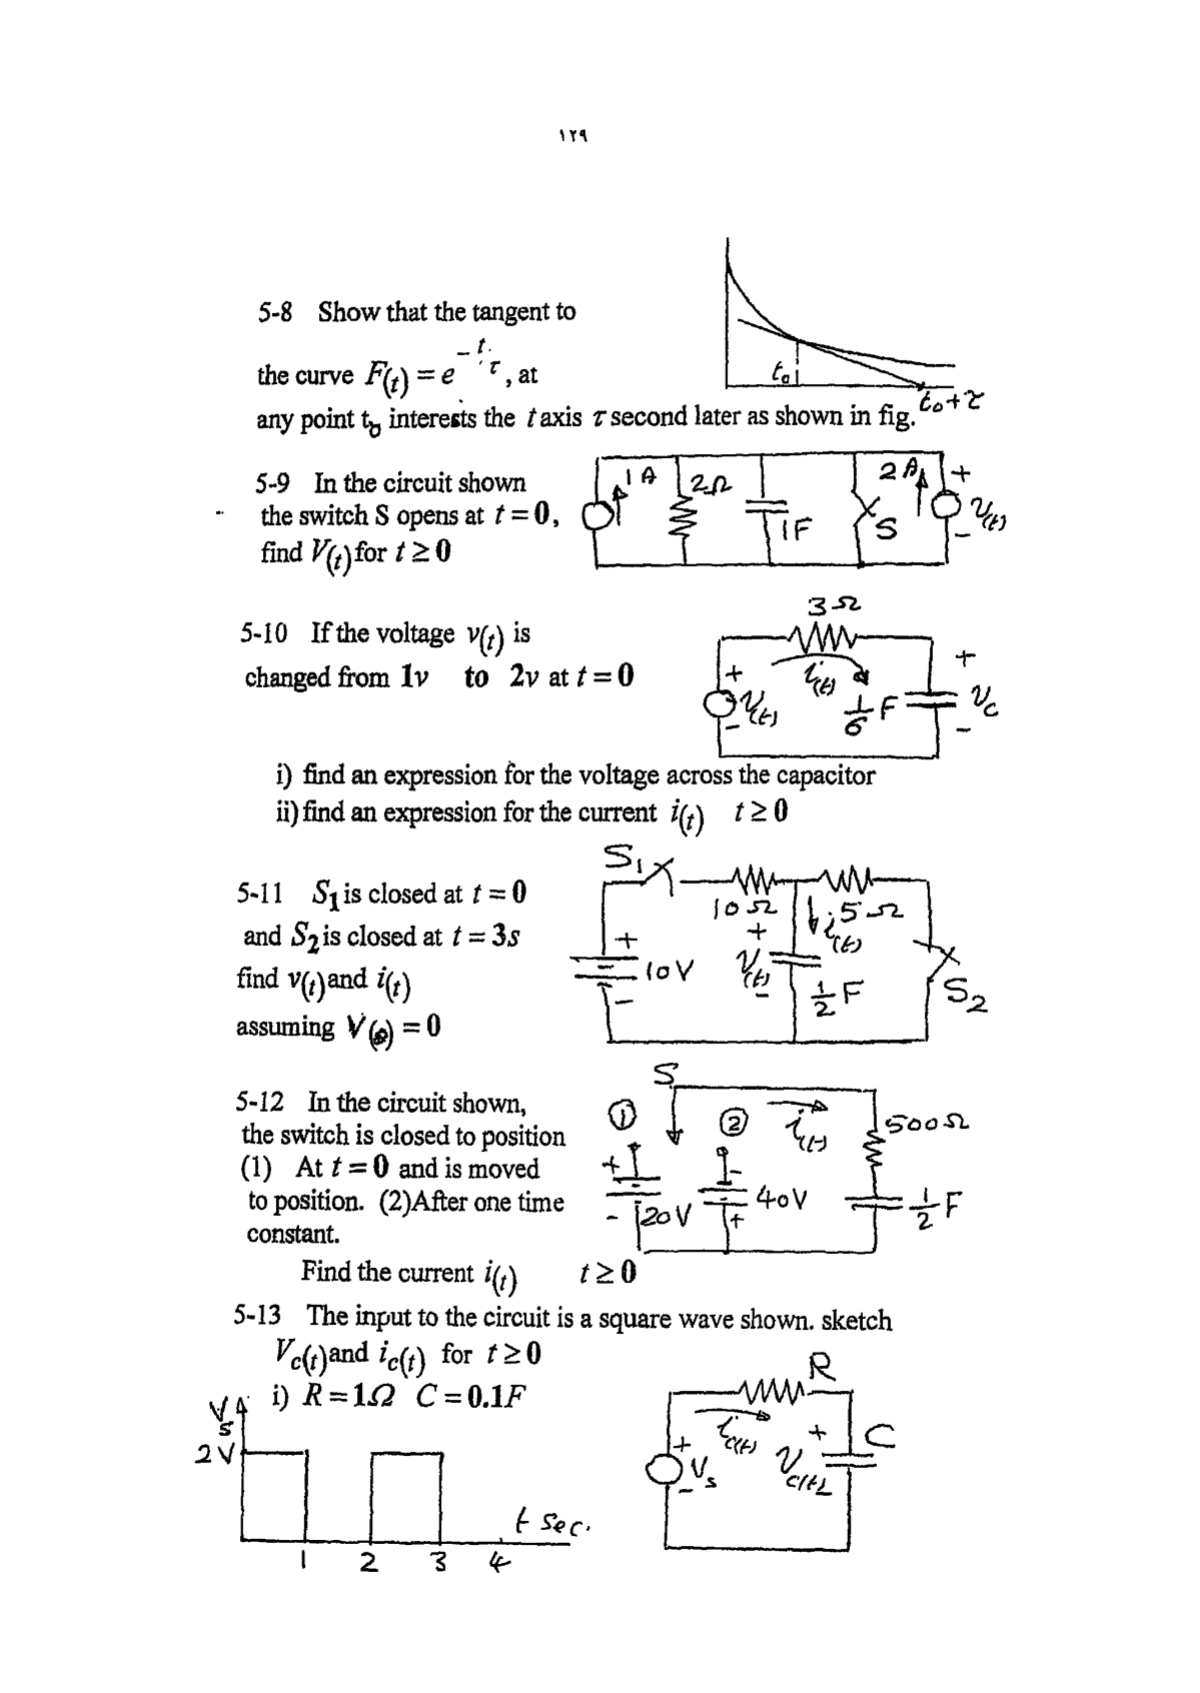 ١٢٩
5-8 Show that the tangent to
the curve F(t) = e^(-t/τ), at
any point t₀ interests the t axis τ second later as shown in fig.
t₀
t₀+τ
5-9 In the circuit shown
the switch S opens at t = 0,
find V(t) for t ≥ 0
1A
2Ω
1F
S
2A
+
V(t)
-
5-10 If the voltage v(t) is
changed from 1v to 2v at t = 0
3Ω
i(t)
+
V(t)
-
1/6 F
+
Vc
-
i) find an expression for the voltage across the capacitor
ii) find an expression for the current i(t) t ≥ 0
5-11 S₁ is closed at t = 0
and S₂ is closed at t = 3s
find v(t) and i(t)
assuming V(0) = 0
S₁
10Ω
5Ω
i(t)
+
10V
-
+
V(t)
-
1/2 F
S₂
5-12 In the circuit shown,
the switch is closed to position
(1) At t = 0 and is moved
to position. (2) After one time
constant.
Find the current i(t) t ≥ 0
S
①
②
i(t)
500Ω
+
-
20V
-
+
40V
1/2 F
5-13 The input to the circuit is a square wave shown. sketch
Vc(t) and ic(t) for t ≥ 0
i) R = 1Ω C = 0.1F
Vs
2V
1 2 3 4
t sec.
R
ic(t)
+
Vs
-
+
Vc(t)
-
C